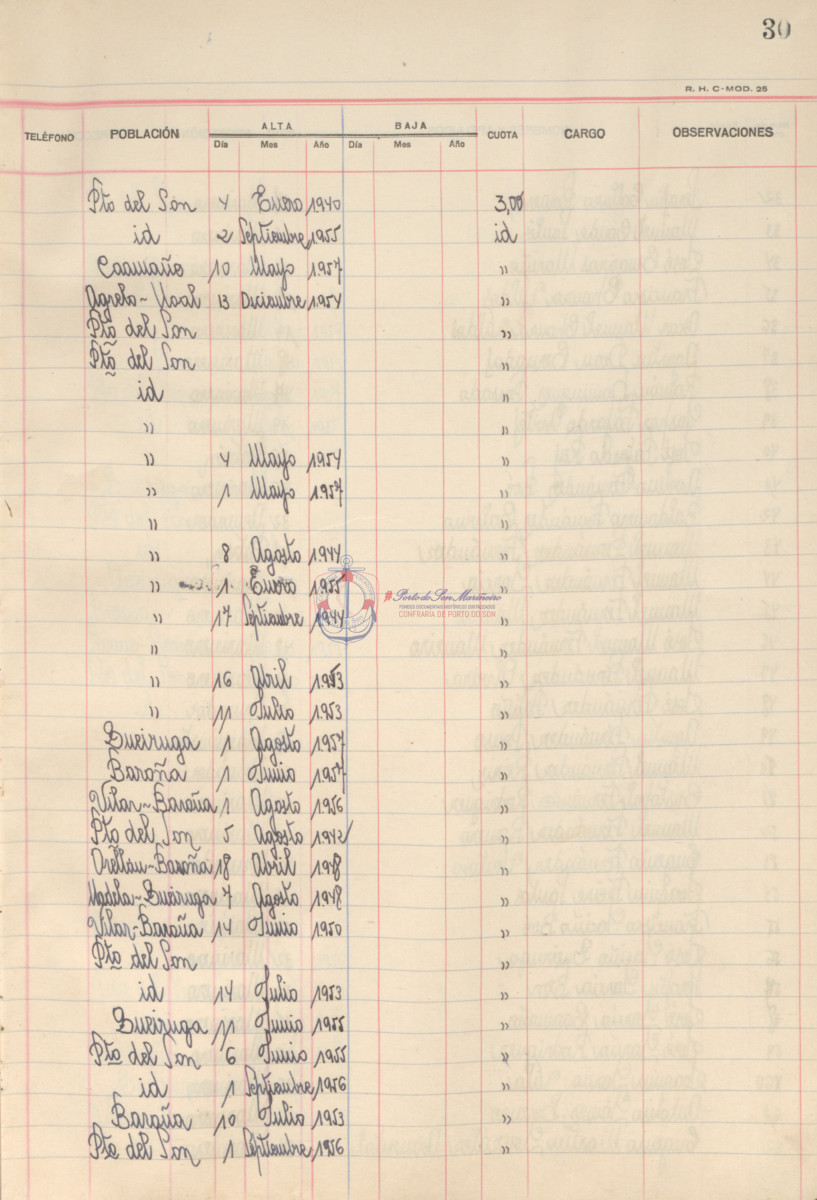 30
R. H. C-MOD. 25
TELÉFONO POBLACIÓN ALTA BAJA CUOTA CARGO OBSERVACIONES
Día Mes Año Día Mes Año
Pto del Son 4 Enero 1940 3,00
id 2 Septiembre 1955 id
Caamaño 10 Mayo 1957 "
Agrelo-Noal 13 Diciembre 1954 "
Pto del Son "
Pto del Son "
id "
" "
" 4 Mayo 1954 "
" 1 Mayo 1957 "
" "
" 8 Agosto 1944 "
" 1 Enero 1955 "
" 17 Septiembre 1944 "
" "
" 16 Abril 1953 "
" 11 Julio 1953 "
Queiruga 1 Agosto 1957 "
Baroña 1 Junio 1957 "
Vilar-Baroña 1 Agosto 1956 "
Pto del Son 5 Agosto "
Baroña 18 Abril "
Queiruga 7 Agosto 1948 "
Vilar-Baroña 14 Junio 1950 "
Pto del Son "
id 14 Julio 1953 "
Queiruga 11 Junio 1955 "
Pto del Son 6 Junio 1955 "
id 1 Septiembre 1956 "
Baroña 10 Julio 1953 "
Pto del Son 1 Septiembre 1956 "
#Porto do Son Mariñeiro
FONDOS DOCUMENTAIS HISTÓRICOS DIXITALIZADOS
CONFRARÍA DE PORTO DO SON